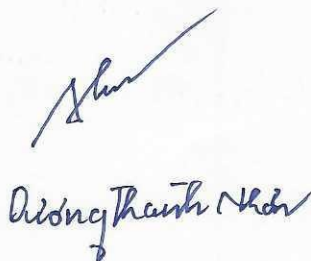 Dương Thành Nhân